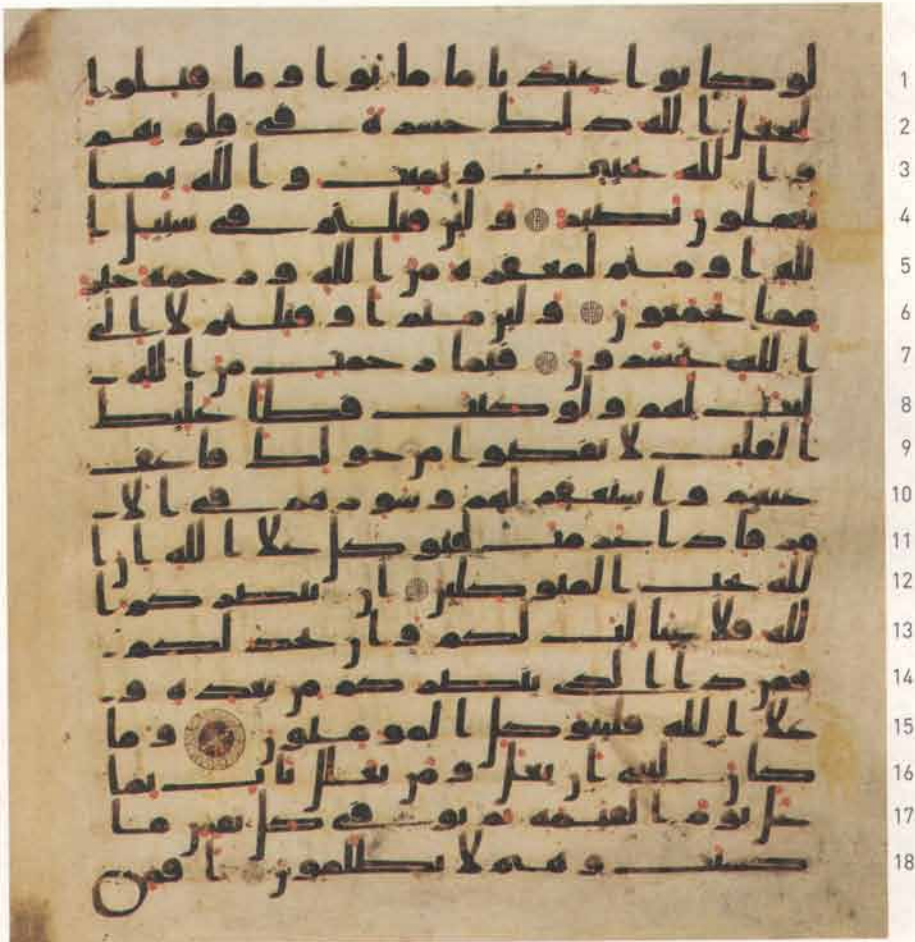 لو كانوا عندنا ما ماتوا وما قتلوا 1
ليجعل الله ذلك حسرة في قلوبهم 2
والله يحيي ويميت والله بما 3
تعملون بصير ولئن قتلتم في سبيل ا 4
لله او متم لمغفرة من الله ورحمة خير 5
مما يجمعون ولئن متم او قتلتم لالى 6
الله تحشرون فبما رحمة من الله 7
لنت لهم ولو كنت فظا غليظ 8
القلب لانفضوا من حولك فاعف 9
عنهم واستغفر لهم وشورهم في الا 10
مر فاذا عزمت فتوكل على الله ان ا 11
لله يحب المتوكلين ان ينصركم ا 12
لله فلا غالب لكم وان يخذلكم 13
فمن ذا الذي ينصركم من بعده و 14
على الله فليتوكل المومنون وما 15
كان لنبي ان يغل ومن يغلل يات بما 16
غل يوم القيمة ثم توفى كل نفس ما 17
كسبت وهم لا يظلمون افمن 18